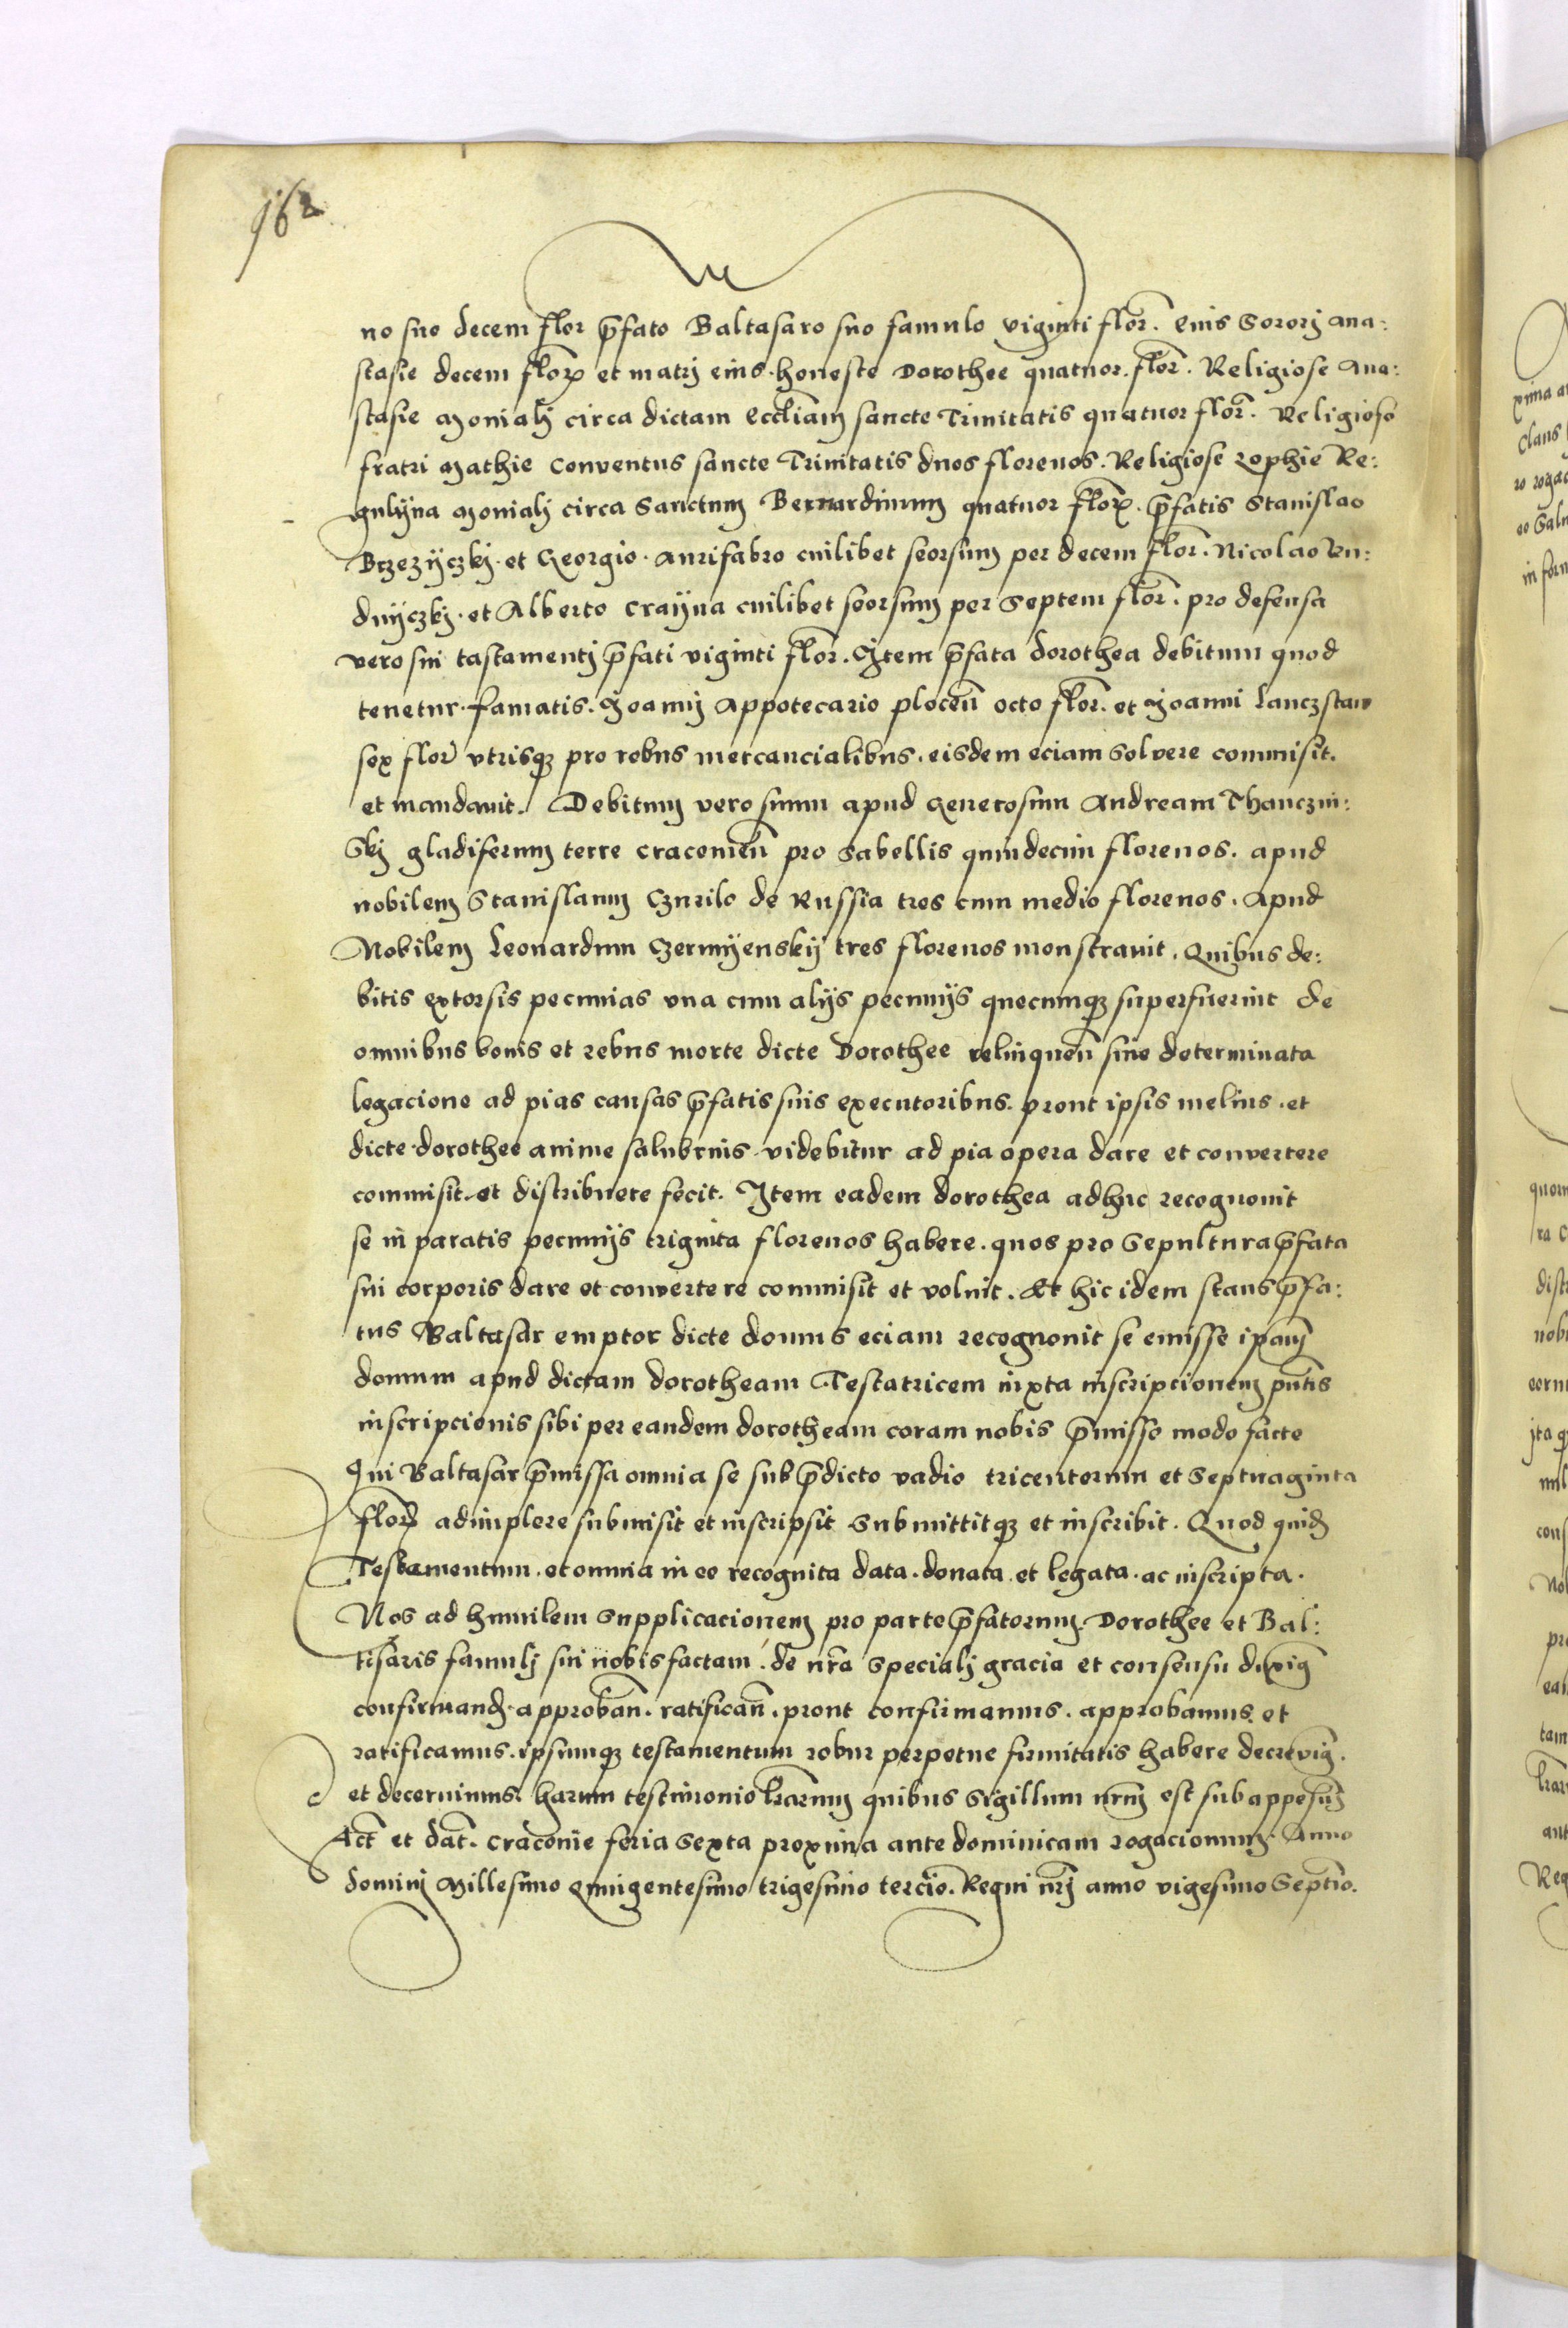 162
no suo decem flor p̄fato Baltasaro suo famulo viginti flor̄. Eius Sororj Ana:
stasie decem flor̄ et matrj eius. honeste Dorothee quatuor. flor̄. Religiose Ana:
stasie Monialj circa dictam Eccl̄iam sancte Trinitatis quatuor flor̄. Religioso
fratri Mathie Conventus sancte Trinitatis duos florenos. Religiose Zophie Re:
gulÿna Monialj circa Sanctum Bernardinum quatuor flor̄. p̄fatis Stanislao
Brzezÿczkj. et Georgio. Aurifabro cuilibet seorsum per decem flor̄. Nicolao Ru:
dnÿczkj. et Alberto Craÿna cuilibet seorsum per Septem flor̄. pro defensa
vero sui tastamentj p̄fati viginti flor̄. Item p̄fata Dorothea debitum quod
tenetur. famatis. Joannj Appotecario ploceñ octo flor̄. et Joanni Lanczstaw
sex flor̄ vtrisqʒ pro rebus mercancialibus. eisdem eciam Solvere commisit.
et mandauit. Debitum vero suum apud Generosum Andream Thanczin:
Skj gladiferum terre Cracovieñ pro Sabellis quindecim florenos. apud
nobilem Stanislaum Czurilo de Russia tres cum medio florenos. Apud
Nobilem Leonardum Czermÿenskÿ tres florenos monstrauit. Quibus de:
bitis extorsis pecunias vna cum alÿs pecunÿs quecumqʒ superfuerint de
omnibus bonis et rebus morte dicte Dorothee relinqueñ sine determinata
legacione ad pias causas p̄fatis suis executoribus. prout ipsis melius. et
dicte. dorothee anime salubrius videbitur ad pia opera dare et convertere
commisit. et distribuere fecit. Item eadem dorothea adhuc recognouit
se in paratis pecunÿs triginta florenos habere. quos pro Sepultura p̄fata
sui corporis dare et convertere commisit et voluit. Et hic idem stans p̄fa:
tus Baltasar emptor dicte domus eciam recognouit se emisse ip̄am
domum apud dictam dorotheam Testatricem iuxta inscriptionem pn̄tis
inscripcionis sibi per eandem dorotheam coram nobis p̄misso modo facte
Qui Baltasar p̄missa omnia se sub p̄dicto vadio tricentorum et Septuaginta
flor̄ adimplere submisit et inscripsit Submittitqʒ et inscribit. Quod quid̄
Testamentum. et omnia in eo recognita data. donata. et legata. ac inscripta.
Nos ad humilem Supplicacionem pro parte p̄fatorum Dorothee et Bal:
tisaris famulj sui nobis factam. de nr̄a Specialj gracia et consensu duxim̄
confirmand̄. approban̄. ratifican̄. prout confirmamus. approbamus. et
ratificamus. ipsumqʒ testamentum robur perpetue firmitatis habere decrevim̄.
et decernimus. harum testimonio l̄rarum quibus Sigillum nr̄m est subappensum̄
Act̄ et dat̄. Cracovie feria Sexta proxima ante dominicam rogacionum. Anno
Dominj Millesimo Quingentesimo trigesimo tercio. Regni nr̄j anno vigesimo Septi̅o.